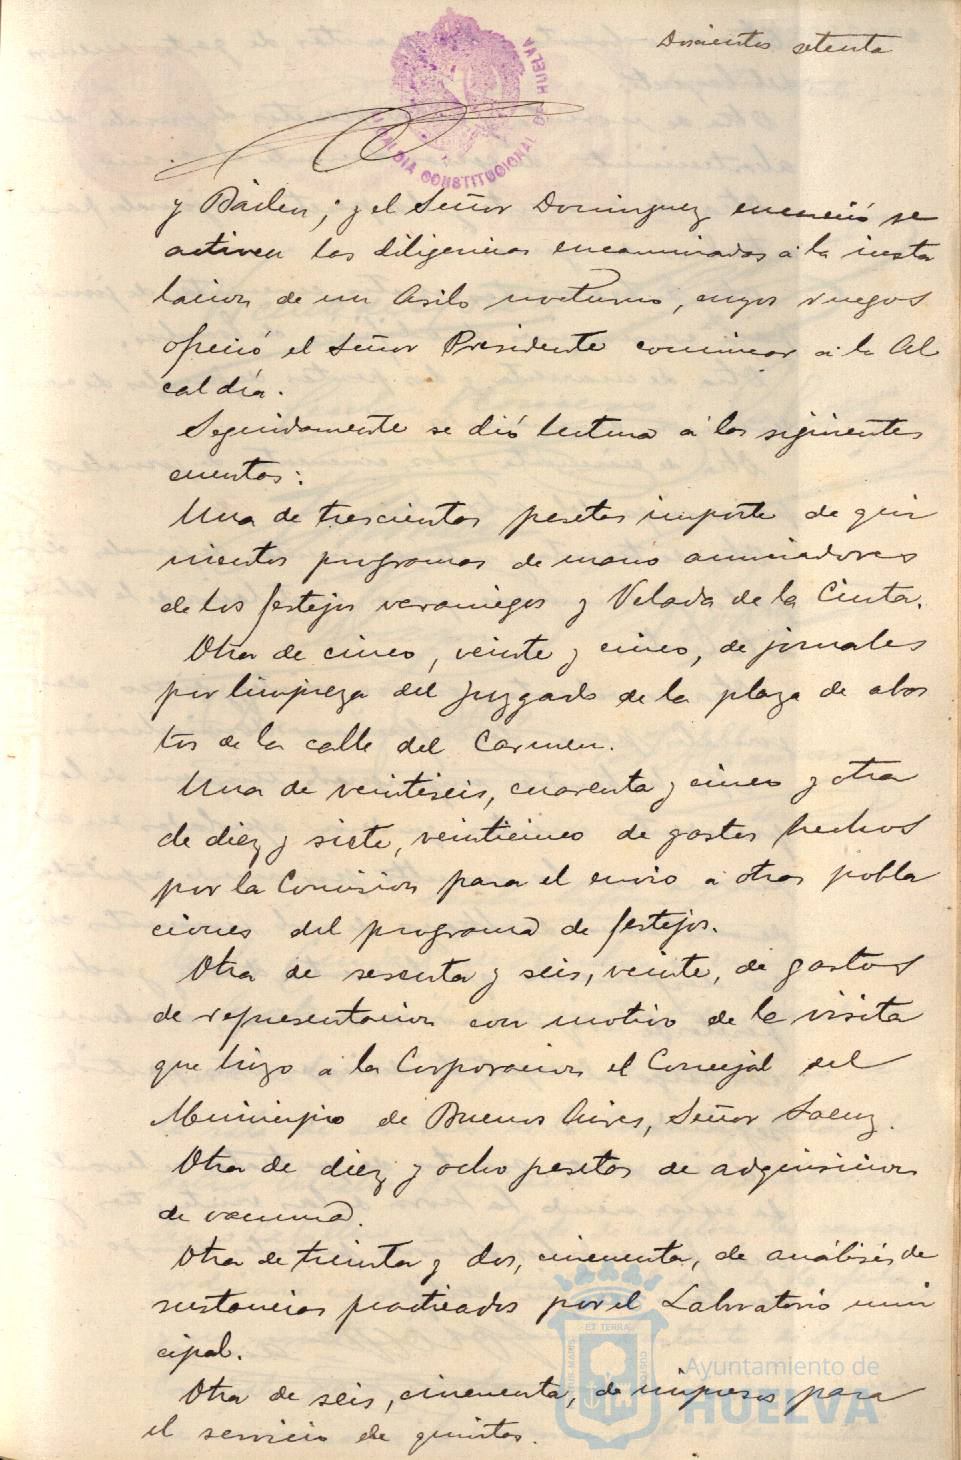 Doscientos setenta
ALCALDIA CONSTITUCIONAL DE HUELVA
y Bailen; y el Señor Dominguez se
activen las diligencias encaminadas á la insta
lacion de un Asilo nocturno, cuyos ruegos
ofreció el Señor Presidente comunicar á la Al
caldía.
Seguidamente se dió lectura á las siguientes
cuentas:
Una de trescientas pesetas importe de qui
nientos programas de mano anunciadores
de los festejos veraniegos y Velada de la Cinta.
Otra de cinco, veinte y cinco, de jornales
por limpieza del juzgado de la plaza de abas
tos de la calle del Carmen.
Una de veintiseis, cuarenta y cinco y otra
de diez y siete, veinticinco de gastos hechos
por la Comision para el envio á otras pobla
ciones del programa de festejos.
Otra de sesenta y seis, veinte, de gastos
de representacion con motivo de la visita
que hizo á la Corporacion el Concejal del
Municipio de Buenos Aires, Señor Saenz.
Otra de diez y ocho pesetas de adquisicion
de vacuna.
Otra de treinta y dos, cincuenta, de análisis de
sustancias practicados por el Laboratorio muni
cipal.
Otra de seis, cincuenta, de impresos para
el servicio de quintas.
ET TERRA
Ayuntamiento de
HUELVA